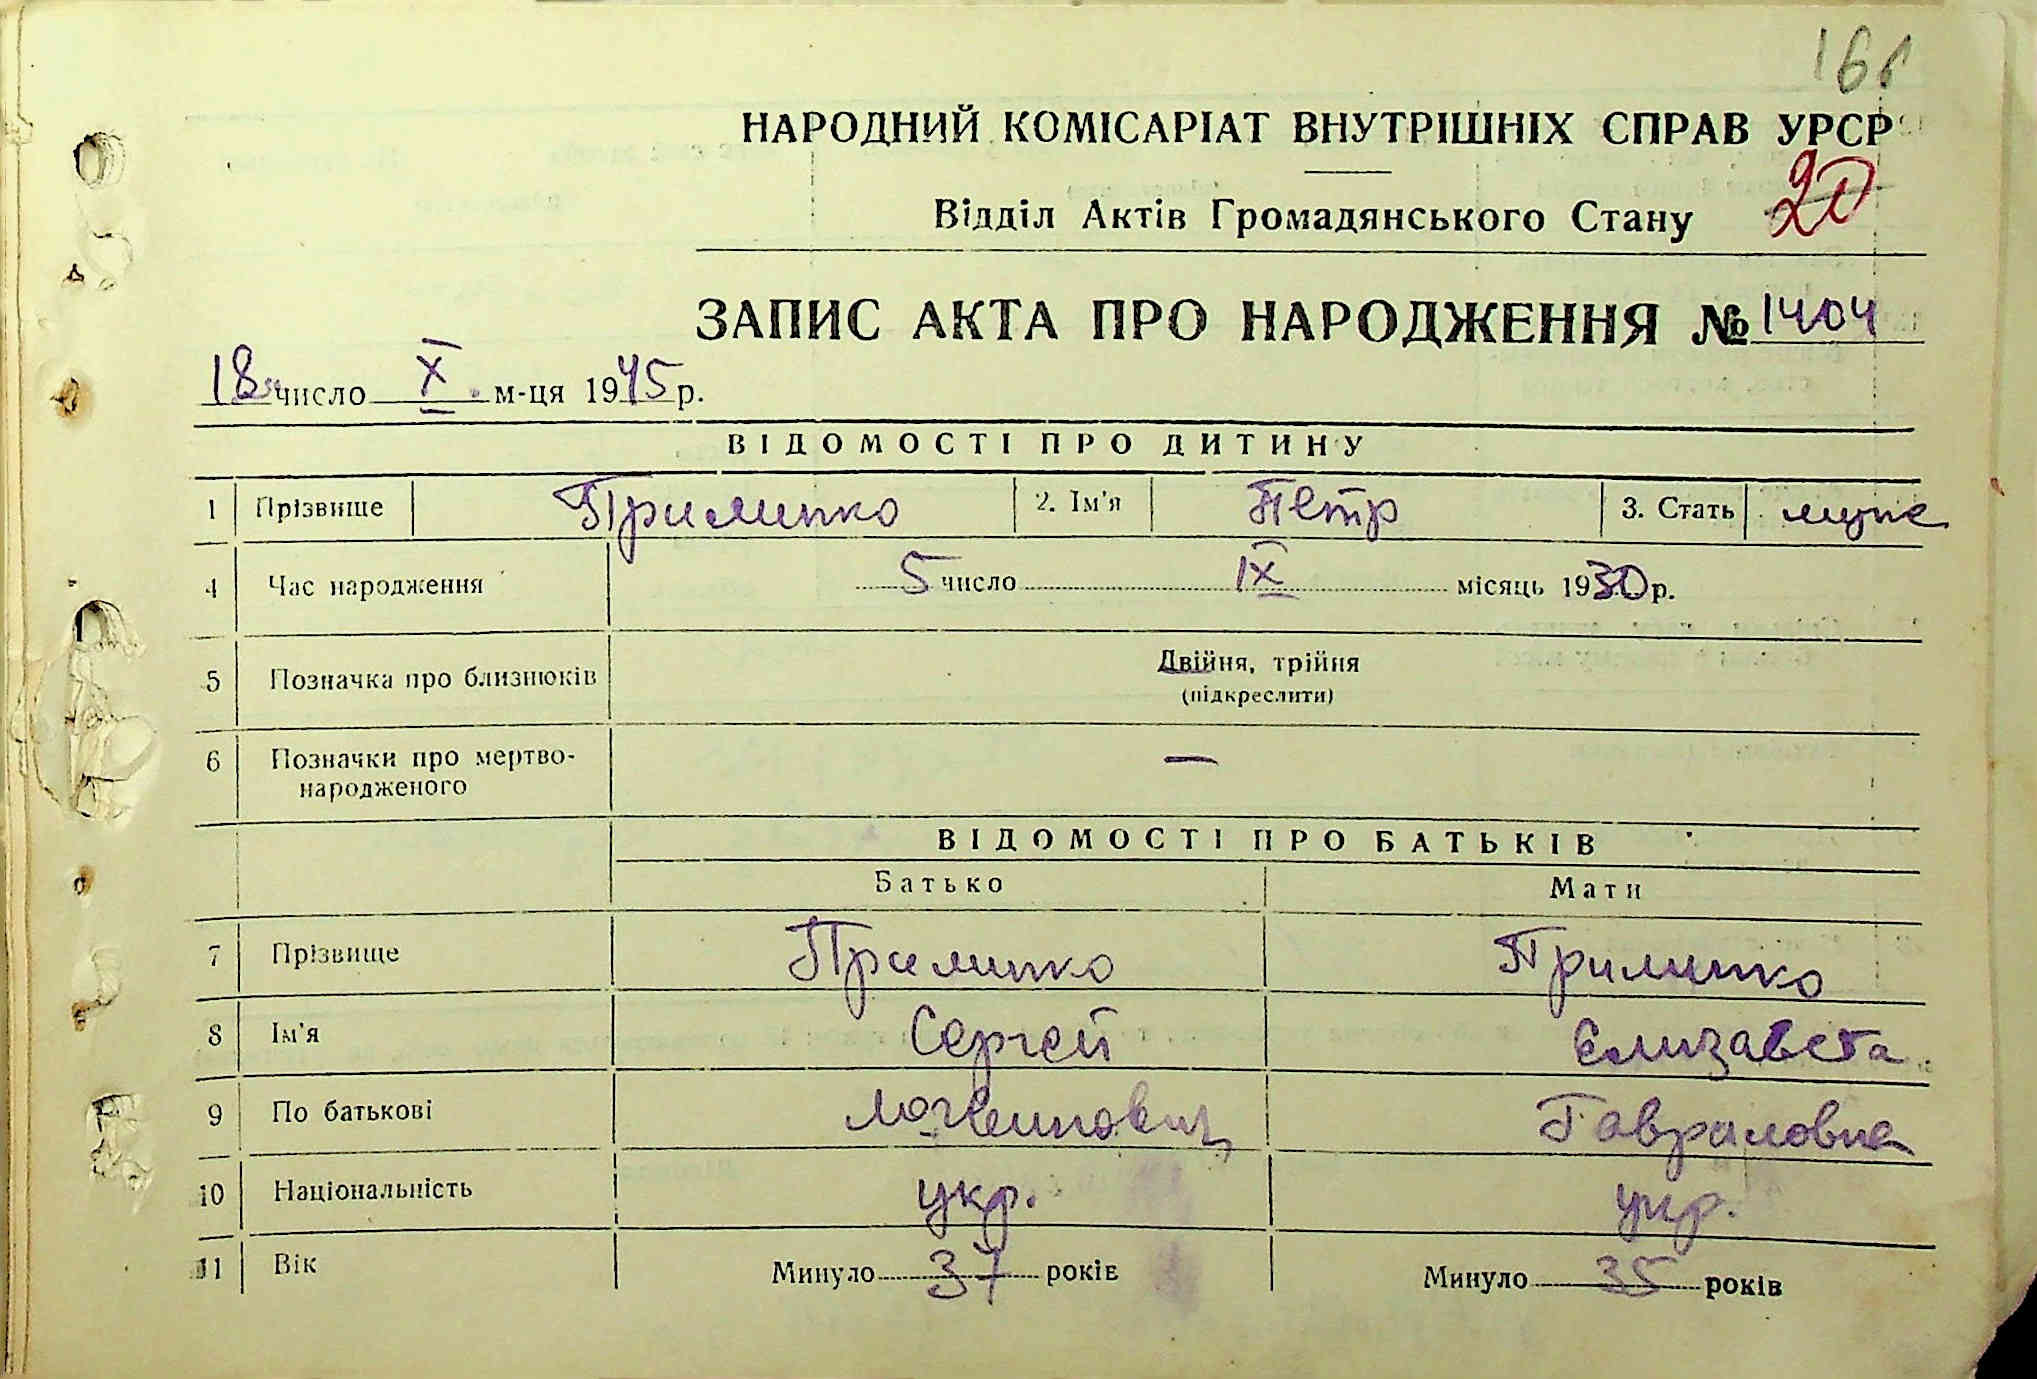 161
НАРОДНИЙ КОМІСАРІАТ ВНУТРІШНІХ СПРАВ УРСР
Відділ Актів Громадянського Стану
20
ЗАПИС АКТА ПРО НАРОДЖЕННЯ № 1404
18 число X м-ця 1945 р.
ВІДОМОСТІ ПРО ДИТИНУ
1 Прізвище Прилипко 2. Ім'я Петр 3. Стать муж
4 Час народження 5 число IX місяць 1930 р.
5 Позначка про близнюків Двійня, трійня
(підкреслити)
6 Позначки про мертво-
народженого —
ВІДОМОСТІ ПРО БАТЬКІВ
Батько Мати
7 Прізвище Прилипко Прилипко
8 Ім'я Сергей Єлизавета
9 По батькові Логвинович Гавриловна
10 Національність укр. укр.
11 Вік Минуло 37 років Минуло 35 років